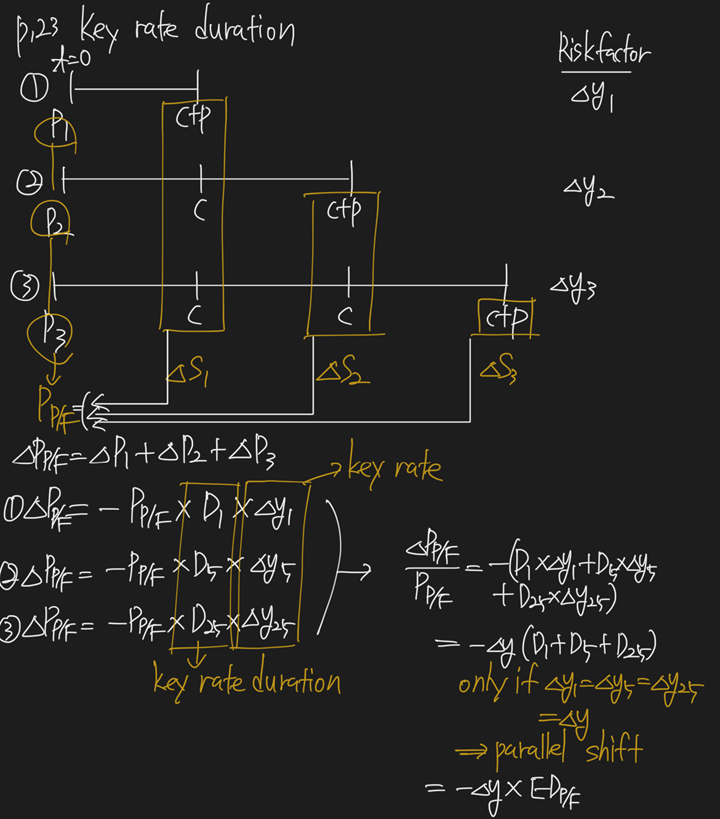 p.23 Key rate duration
t=0
Risk factor
①
C+P
Δy₁
P₁
②
C
C+P
Δy₂
P₂
③
C
C
C+P
Δy₃
P₃
ΔS₁
ΔS₂
ΔS₃
P_P/F =
ΔP_P/F = ΔP₁ + ΔP₂ + ΔP₃
→ key rate
① ΔP_P/F = - P_P/F × D₁ × Δy₁
② ΔP_P/F = - P_P/F × D₅ × Δy₅
③ ΔP_P/F = - P_P/F × D₂₅ × Δy₂₅
key rate duration
ΔP_P/F / P_P/F = -(D₁×Δy₁+D₅×Δy₅
+ D₂₅×Δy₂₅)
= -Δy (D₁+D₅+D₂₅)
only if Δy₁=Δy₅=Δy₂₅
=Δy
⇒ parallel shift
= -Δy × ED_P/F